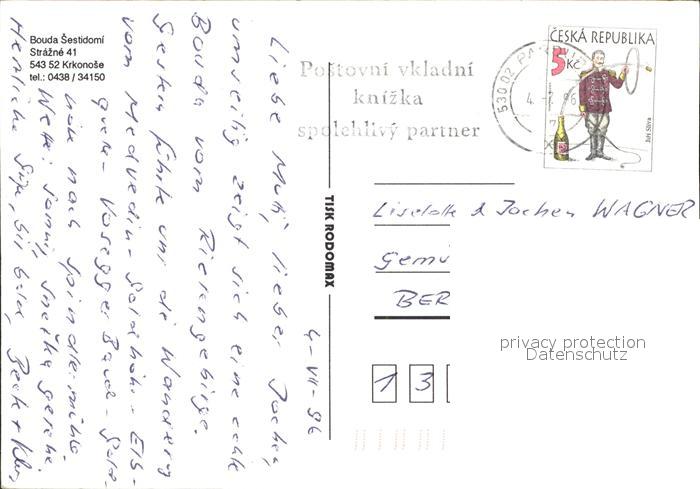 Bouda Šestidomí
Strážné 41
543 52 Krkonoše
tel.: 0438 / 34150
4-VII-96
Liebe Mutj, lieber Jochen,
umseitig zeigt sich eine echte
Bouda vom Riesengebirge.
Gestern führte uns die Wanderung
vom Medvedin - Goldhöhe - Elb-
quelle - Vosegger Baude -
nach Spindlermühle.
Wetter: sonnig,
Herzliche Grüße, bis bald,
TISK RODOMAX
Poštovní vkladní
knížka
spolehlivý partner
530 02 PA
4. 96
ČESKÁ REPUBLIKA
5 Kč
Jiří Slíva
Liselotte & Jochen WAGNER
Gemü
BER
1 3
privacy protection
Datenschutz